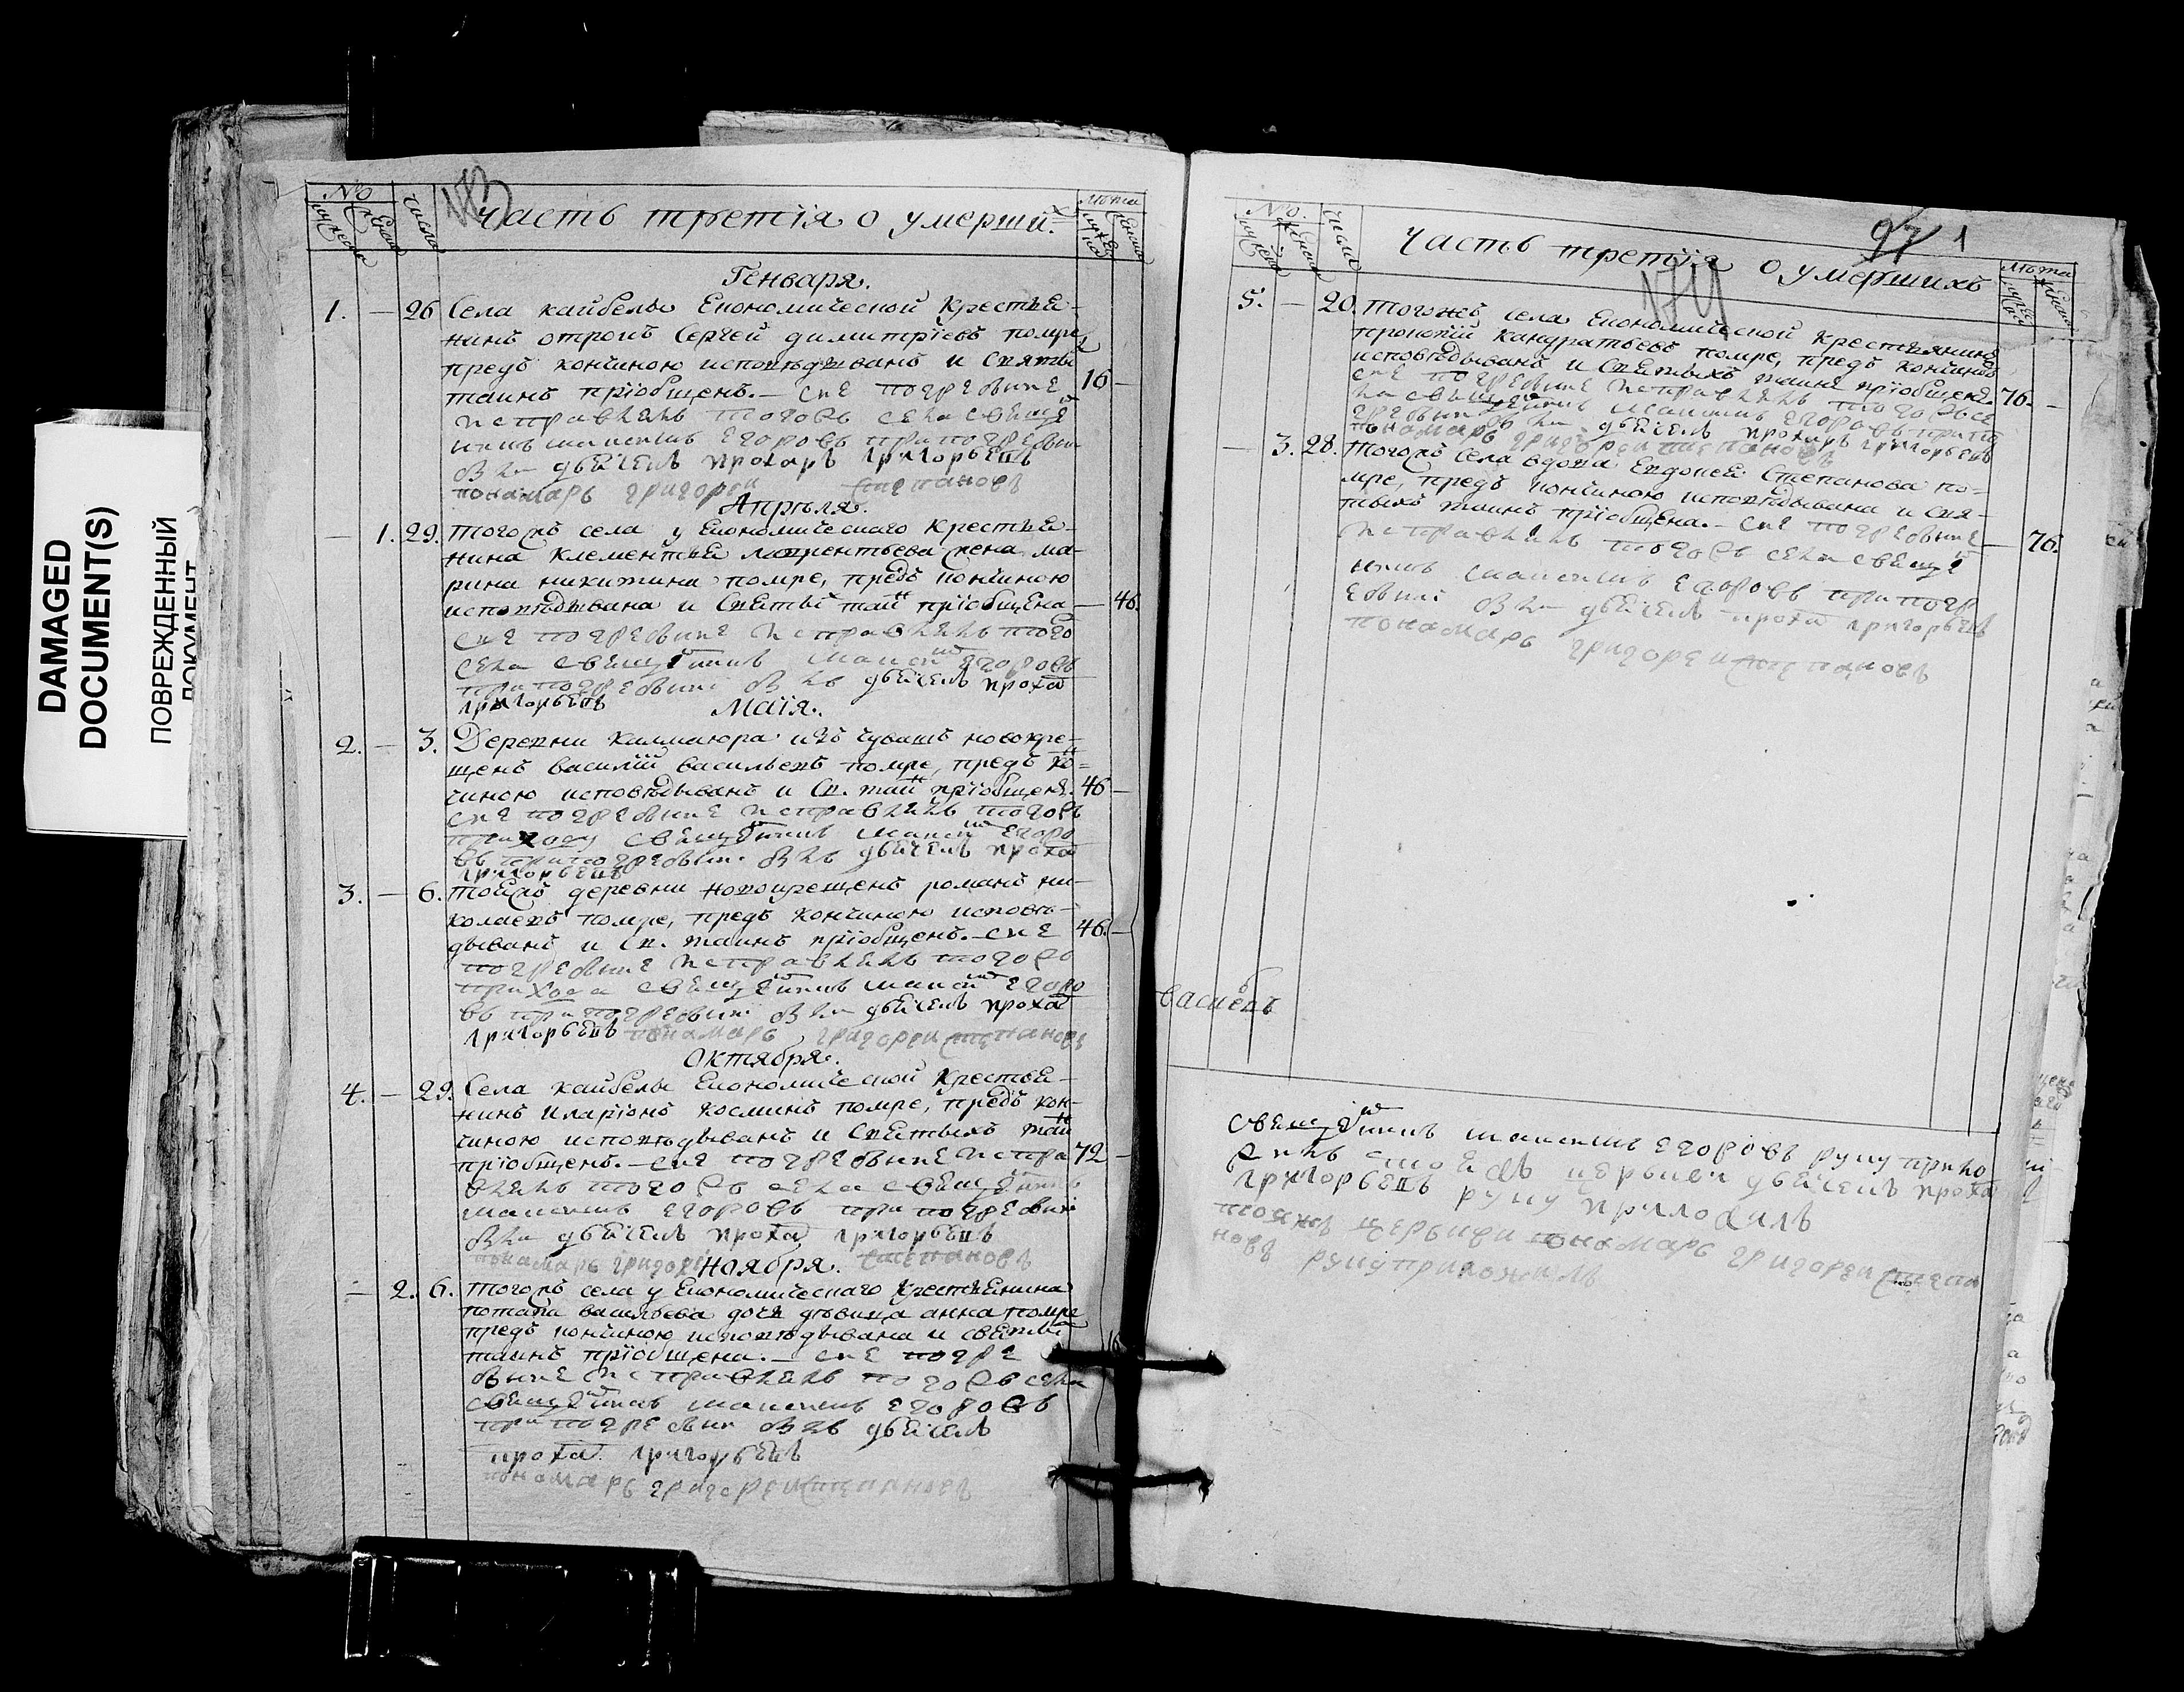 DAMAGED
DOCUMENT(S)
ПОВРЕЖДЕННЫЙ
ДОКУМЕНТ
№
число
лѣта
183
Часть третiя о умерши х.
Генваря.
1. — 26 Села кайбелы Економической крестьє-
нинъ отрокъ Сергей димитрiевъ помре
предъ кончиною исповѣдыванъ и Святы х
таинъ прiобщенъ. — сие погребение 16 —
исправлялъ тогожъ села свеще
никъ маѯимъ егоровъ при погребени
былъ дьячекъ прохаръ григорьевъ
понамарь григореи степановъ
Апрѣля.
— 1. 29. тогожъ села у Економическаго крестьє-
нина клементья лаврентьева жена ма-
рина никитина помре, предъ кончиною
исповѣдывана и Святы таи н прiобщена — 46.
сие погребение исправлялъ того
села свещенникъ маѯим егоровъ
при погребени былъ дьячекъ проха
григорьевъ
Маiя.
2. — 3. Деревни калмаюра изъ чувашъ новокре-
щенъ василiй васильевъ помре, предъ ко н
чиною исповѣдыванъ и Св. таи н прiобщенъ. 46 —
сие погребение исправлялъ тогожъ
приходу свещенникъ маѯим егоро
въ при погребени былъ дьячекъ проха
григорьевъ
3. — 6. тоежъ деревни новокрещенъ романъ ни-
колаевъ помре, предъ кончиною исповѣ-
дыванъ и Св. таинъ прiобщенъ. — сие 46. —
погребение исправлялъ тогожъ
прихода свещенникъ маѯим егоро
въ при погребени былъ дьячекъ проха
григорьевъ понамарь григореи степановъ
Октября.
4. — 29. Села кайбелы Економической крестьє-
нинъ иларiонъ косминъ помре, предъ кон-
чиною исповѣдыванъ и Святыхъ таи н
прiобщенъ. — сие погребение испра 72 —
влялъ тогожъ села свещенникъ
маѯимъ егоровъ при погребени
былъ дьячекъ проха григорьевъ
понамарь григореи степановъ
Ноября.
— 2. 6. тогожъ села у Економическаго крестьєнина
потапа васильева дочь дѣвица анна помре
предъ кончиною исповѣдывана и святы х
таинъ прiобщена. — сие погре 16
бение исправлялъ тогожъ села
свещенникъ маѯимъ егоровъ
при погребени былъ дьячекъ
проха григорьевъ
понамарь григореи степановъ
97 1
174
№
число
лѣта
Часть третiя о умершихъ
5. — 20. тогожъ села Економической крестьянинъ
прокопiй кандратьевъ помре, предъ кончиною
исповѣдыванъ и Святыхъ таинъ прiобщенъ. 76. —
сие погребение исправлялъ тогожъ се
ла свещенникъ маѯимъ егоровъ при по
гребени былъ дьячекъ прохаръ григорьевъ
понамарь григореи степановъ
— 3. 28. тогожъ села вдова Евдокея Степанова по-
мре, предъ кончиною исповѣдывана и Свя-
тыхъ таинъ прiобщена. — сие погребение
исправлялъ тогожъ села свеще — 76.
никъ маѯимъ егоровъ при погр
ебени былъ дьячекъ проха григорьевъ
понамарь григореи степановъ
свещенникъ маѯимъ егоровъ руку прило
жилъ тоежъ церькви дьячекъ проха
григорьевъ руку приложилъ
тояжъ церькви понамарь григореи степа
новъ руку приложилъ